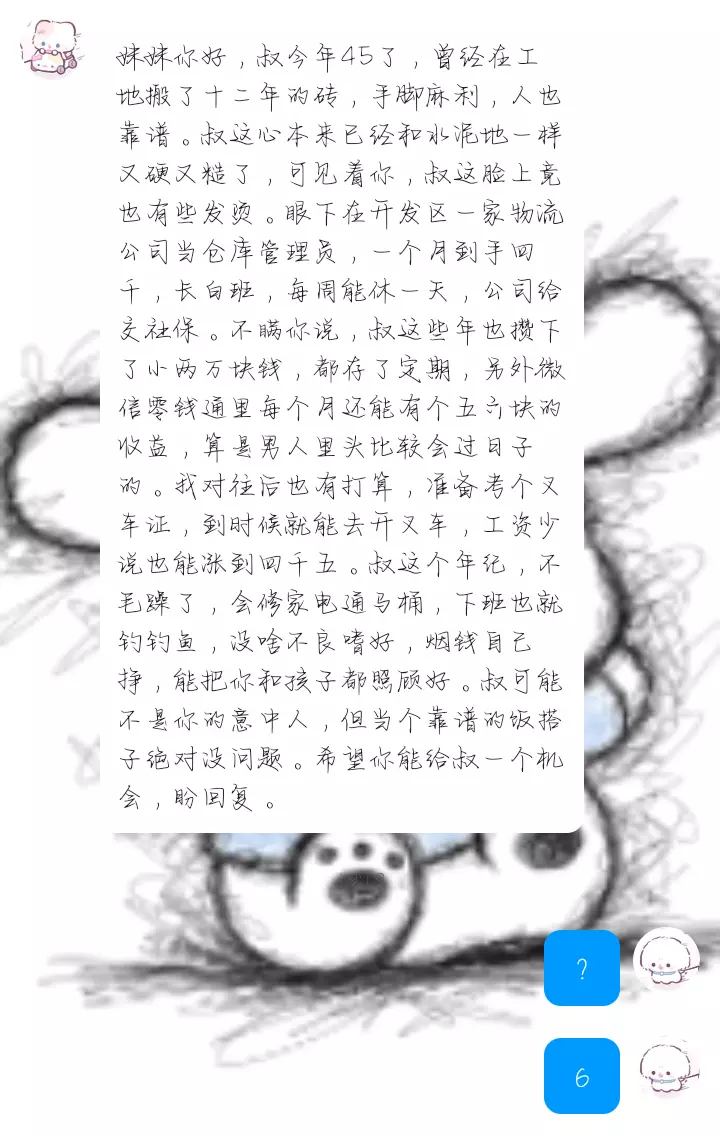 妹妹你好，叔今年45了，曾经在工
地搬了十二年的砖，手脚麻利，人也
靠谱。叔这心本来已经和水泥地一样
又硬又糙了，可见着你，叔这脸上竟
也有些发烫。眼下在开发区一家物流
公司当仓库管理员，一个月到手四
千，长白班，每周能休一天，公司给
交社保。不瞒你说，叔这些年也攒下
了小两万块钱，都存了定期，另外微
信零钱通里每个月还能有个五六块的
收益，算是男人里头比较会过日子
的。我对往后也有打算，准备考个叉
车证，到时候就能去开叉车，工资少
说也能涨到四千五。叔这个年纪，不
毛躁了，会修家电通马桶，下班也就
钓钓鱼，没啥不良嗜好，烟钱自己
挣，能把你和孩子都照顾好。叔可能
不是你的意中人，但当个靠谱的饭搭
子绝对没问题。希望你能给叔一个机
会，盼回复。
?
6